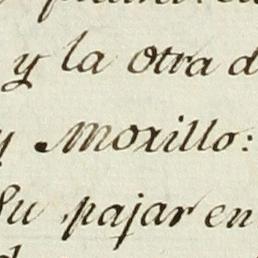 y la otra d
y Morillo:
su pajar en